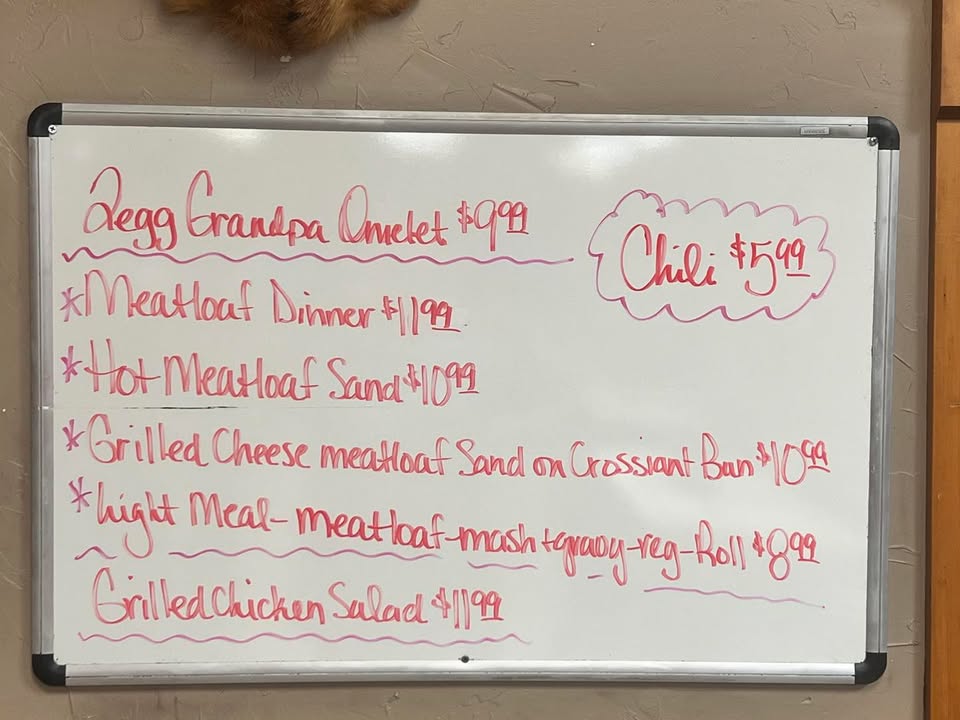 2egg Grandpa Omelet $9.99
Chili $5.99
*Meatloaf Dinner $11.99
*Hot Meatloaf Sand $10.99
*Grilled Cheese meatloaf Sand on Crossiant Bun $10.99
*Light Meal-meatloaf-mash+gravy-veg-Roll $8.99
Grilled Chicken Salad $11.99